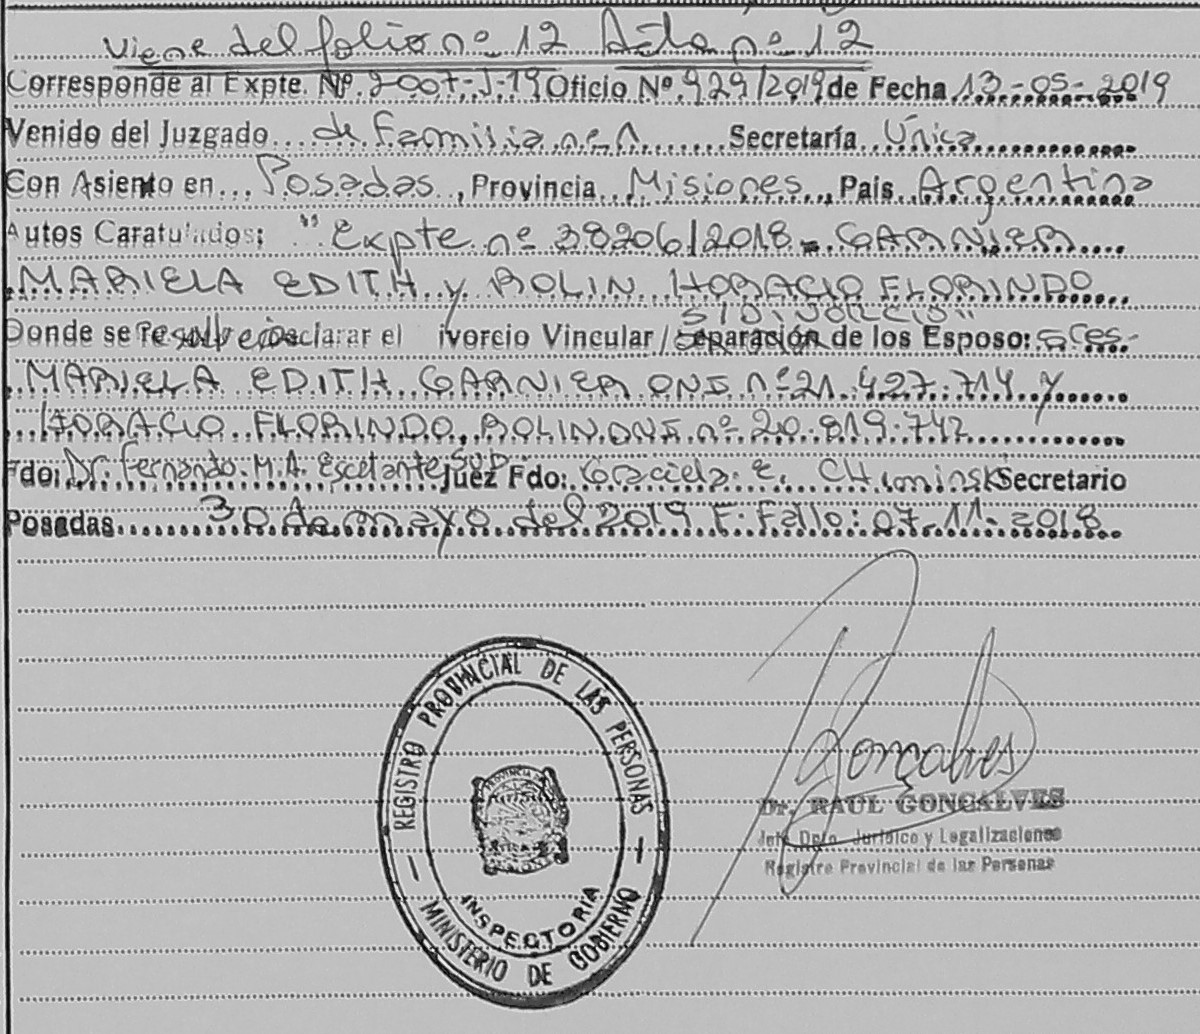 Viene del folio nº 12 Acta nº 12
Corresponde al Expte. Nº 2007-J-19 Oficio Nº 929/2019 de Fecha 13-05-2019
Venido del Juzgado de Familia nº 1 Secretaría Única
Con Asiento en Posadas, Provincia Misiones, Pais Argentina
Autos Caratulados: "Expte nº 38206/2018 - GARNIER
MARIELA EDITH y ROLIN HORACIO FLORINDO
S/DIVORCIO"
Donde se resolvió Declarar el ivorcio Vincular / Separación de los Esposo: s Ces.-
MARIELA EDITH GARNIER DNI nº 21.427.714 y
HORACIO FLORINDO ROLIN DNI nº 20.819.742
Fdo: Dr. Fernando M.A. Escalante Sup. Juez Fdo: Graciela E. CHuminski Secretario
Posadas 30 de mayo del 2019 F. Fallo: 07-11-2018
REGISTRO PROVINCIAL DE LAS PERSONAS
INSPECTORIA
MINISTERIO DE GOBIERNO
Gonçalves
Dr. RAUL GONCALVES
Jefe Dpto. Jurídico y Legalizaciones
Registro Provincial de las Personas